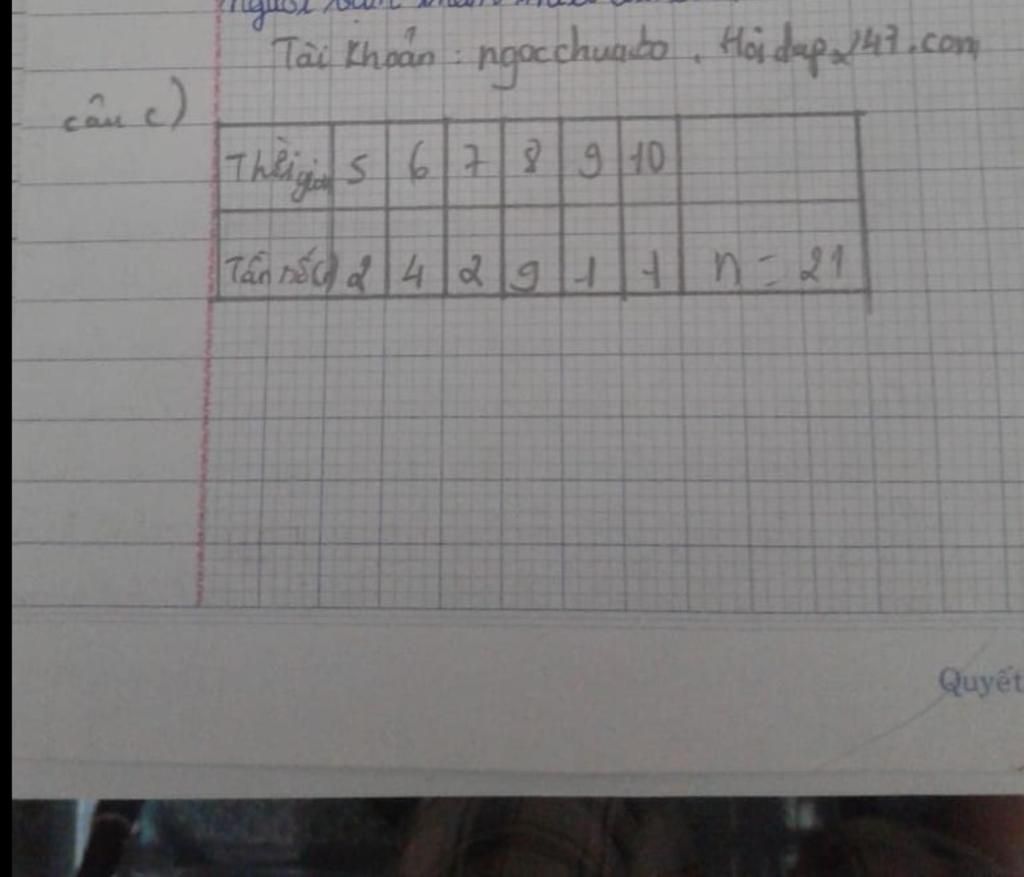 Tài khoản : ngocchuabo . Hoidap247.com
câu c)
Thời gian 5 6 7 8 9 10
Tần số(n) 2 4 2 9 1 1 n = 21
Quyết